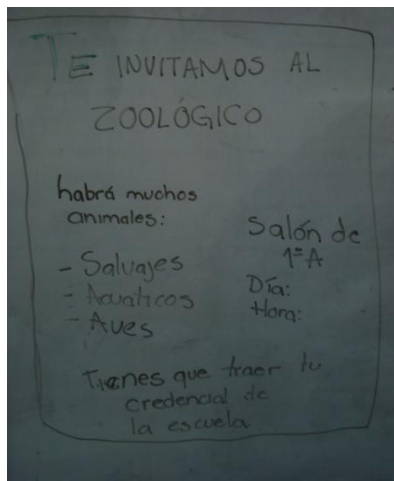 TE INVITAMOS AL
ZOOLÓGICO
habrá muchos
animales:
- Salvajes
- Acuáticos
- Aves
Salón de
1º A
Día:
Hora:
Tienes que traer tu
credencial de
la escuela